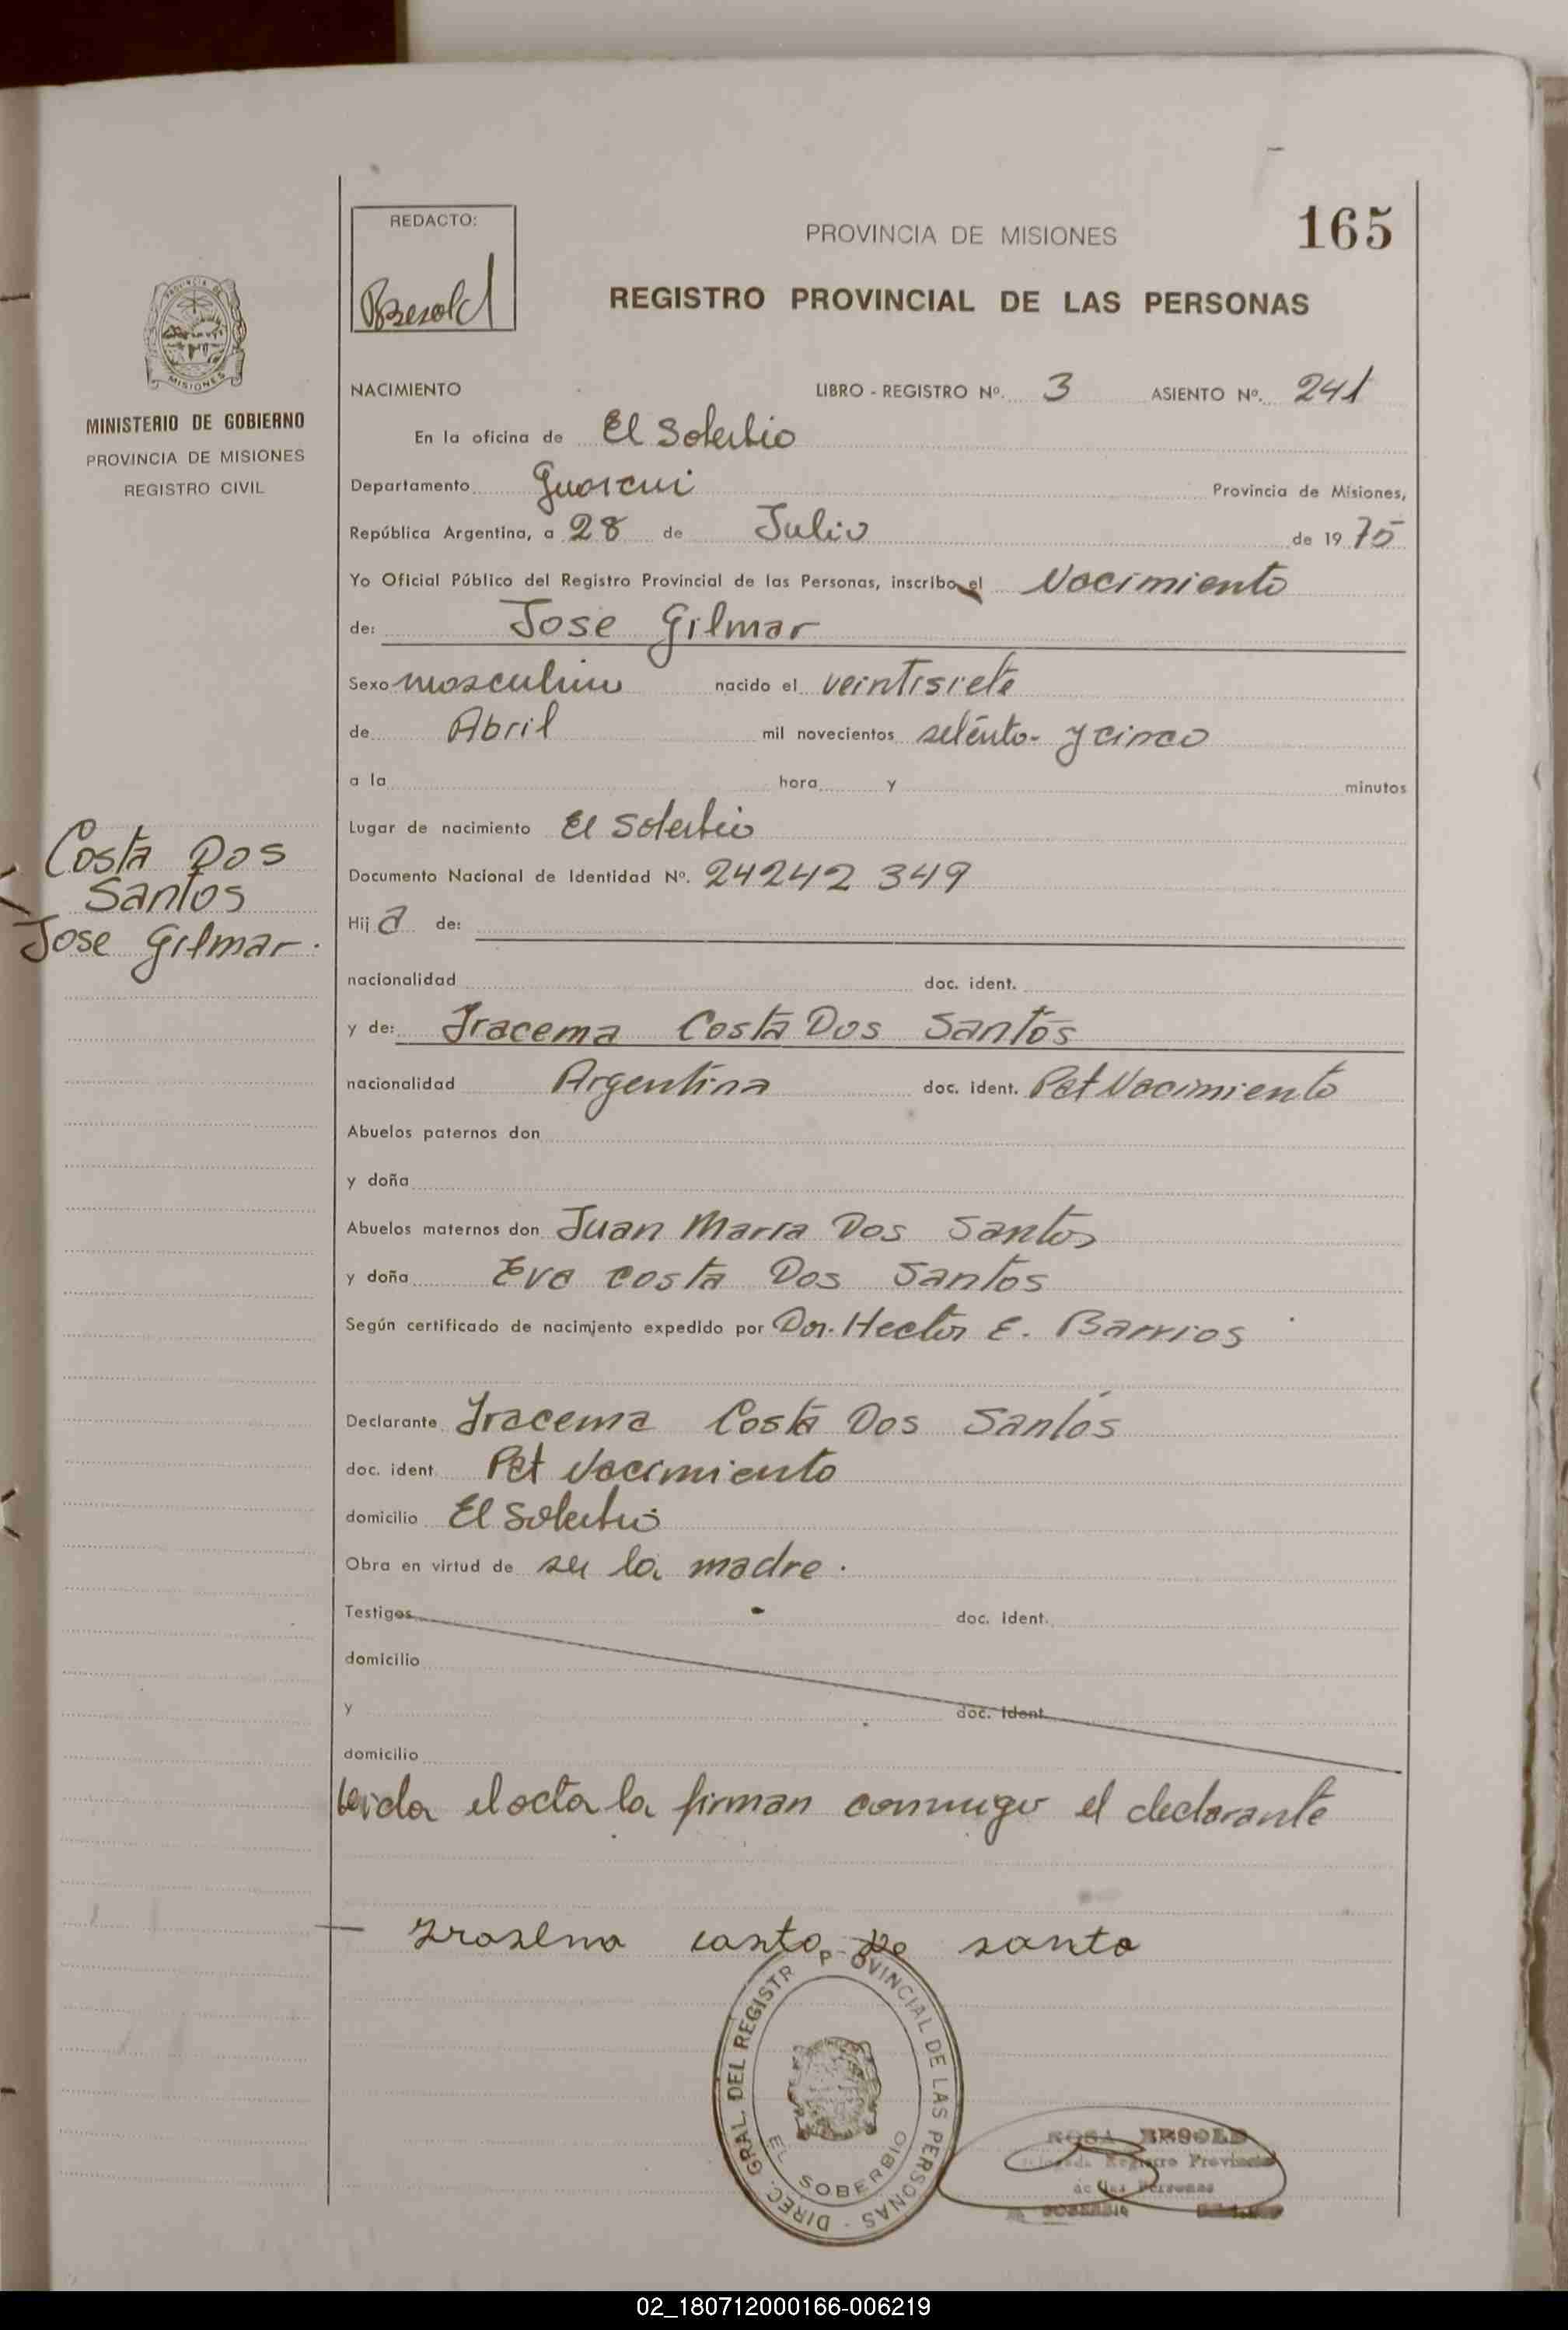 165
REDACTO:
Besold
PROVINCIA DE MISIONES
REGISTRO PROVINCIAL DE LAS PERSONAS
MISIONES
MINISTERIO DE GOBIERNO
PROVINCIA DE MISIONES
REGISTRO CIVIL
NACIMIENTO LIBRO - REGISTRO Nº. 3 ASIENTO Nº. 241
En la oficina de El Soberbio
Departamento Guarani Provincia de Misiones,
República Argentina, a 28 de Julio de 19 75
Yo Oficial Público del Registro Provincial de las Personas, inscribo el Nacimiento
de: Jose Gilmar
Sexo masculino nacido el veintisiete
de Abril mil novecientos setenta y cinco
a la hora y minutos
Lugar de nacimiento El Soberbio
Costa Dos
Santos
Jose Gilmar.
Documento Nacional de Identidad Nº. 24242 349
Hij a de:
nacionalidad doc. ident.
y de: Iracema Costa Dos Santos
nacionalidad Argentina doc. ident. Pat Nacimiento
Abuelos paternos don
y doña
Abuelos maternos don Juan Maria Dos Santos
y doña Eva Costa Dos Santos
Según certificado de nacimiento expedido por Dor. Hector E. Barrios
Declarante Iracema Costa Dos Santos
doc. ident. Pat Nacimiento
domicilio El Soberbio
Obra en virtud de ser la madre.
Testigos doc. ident.
domicilio
y doc. ident.
domicilio
Leida el acta la firman conmigo el declarante
santo
DIREC. GRAL. DEL REGISTR PROVINCIAL DE LAS PERSONAS -
EL SOBERBIO
ROSA BESOLD
Registro Provincial
de las Personas
SOBERBIO
02_180712000166-006219